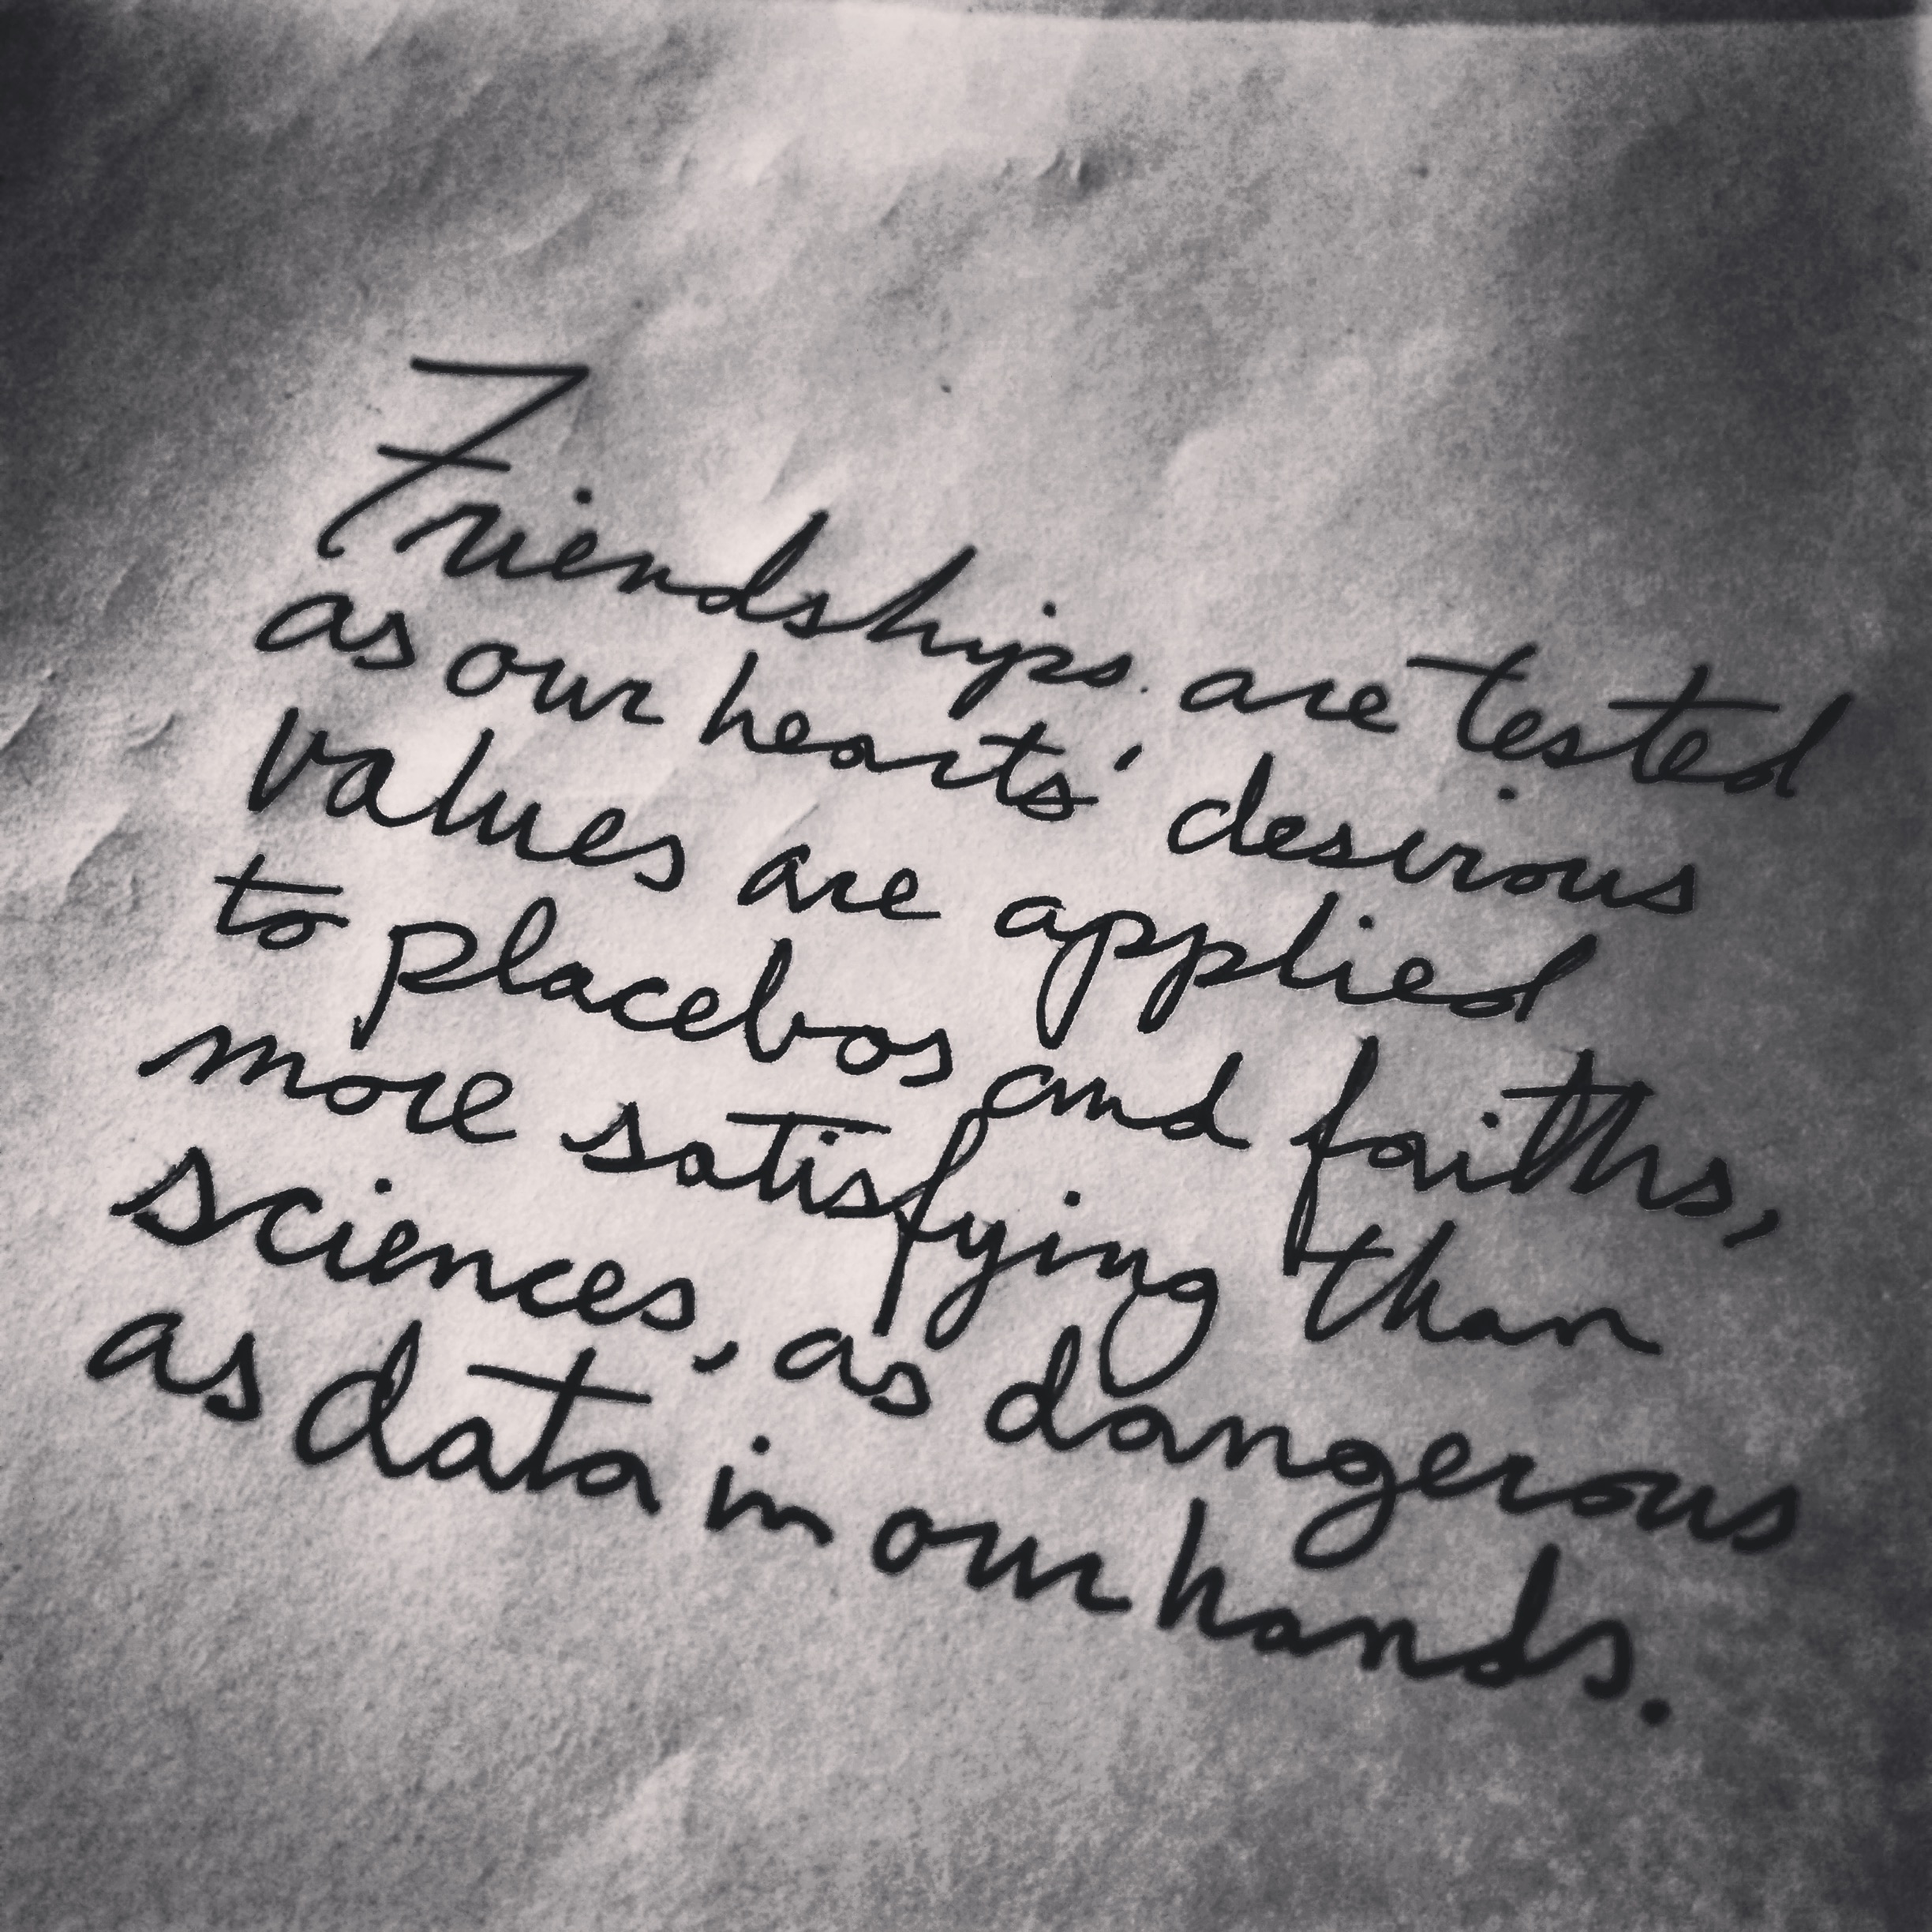 Friendships are tested
as our hearts' desirous
values are applied
to placebos and faiths,
more satisfying than
sciences, as dangerous
as data in our hands.